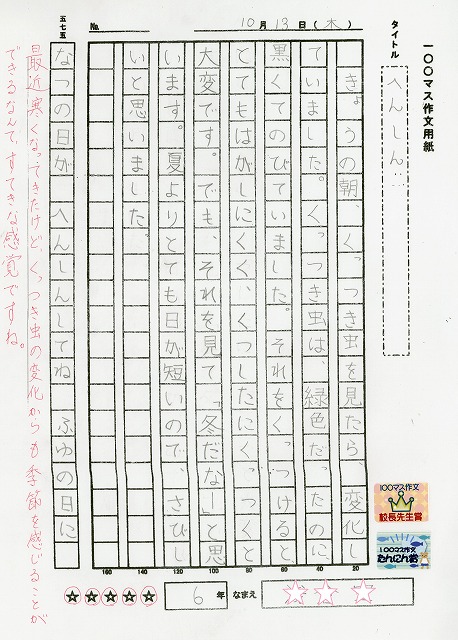 一〇〇マス作文用紙
タイトル
へんしん…
10月13日(木)
No.
きょうの朝、くっつき虫を見たら、変化し
ていました。くっつき虫は、緑色だったのに、
黒くてのびていました。それをくっつけると
とてもはがしにくく、くつしたにくっつくと
大変です。でも、それを見て「冬だなー」と思
います。夏よりとても日が短いので、さびし
いと思いました。
五七五
なつの日が へんしんしてね ふゆの日に
最近寒くなってきたけど、くっつき虫の変化からも季節を感じることが
できるなんて、すてきな感覚ですね。
100マス作文
校長先生賞
100マス作文
たんにん賞
160 140 140 120 100 80 60 40 20
6年 なまえ